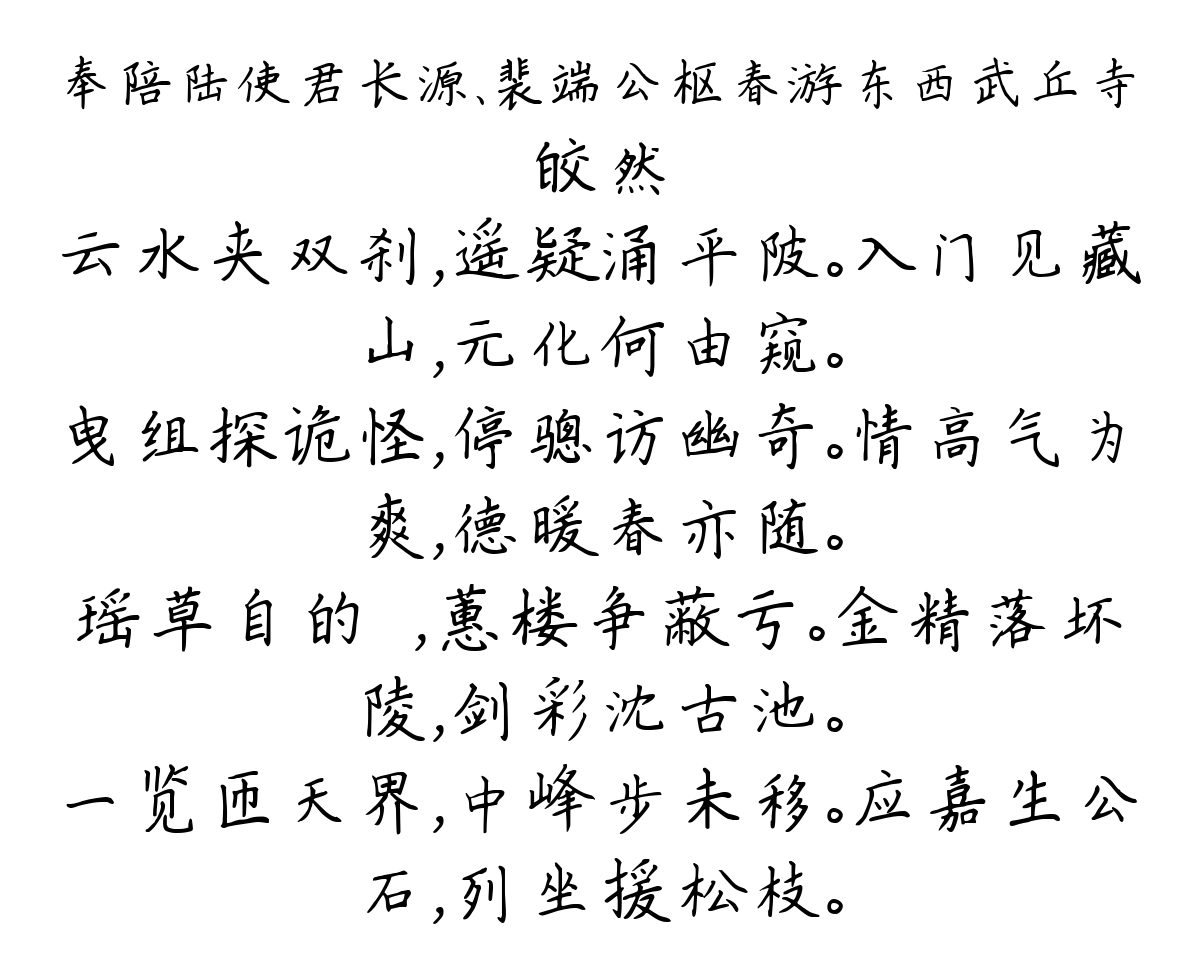 奉陪陆使君长源、裴端公枢春游东西武丘寺
皎然
云水夹双刹,遥疑涌平陂。入门见藏
山,元化何由窥。
曳组探诡怪,停骢访幽奇。情高气为
爽,德暖春亦随。
瑶草自的 ,蕙楼争蔽亏。金精落坏
陵,剑彩沈古池。
一览匝天界,中峰步未移。应嘉生公
石,列坐援松枝。